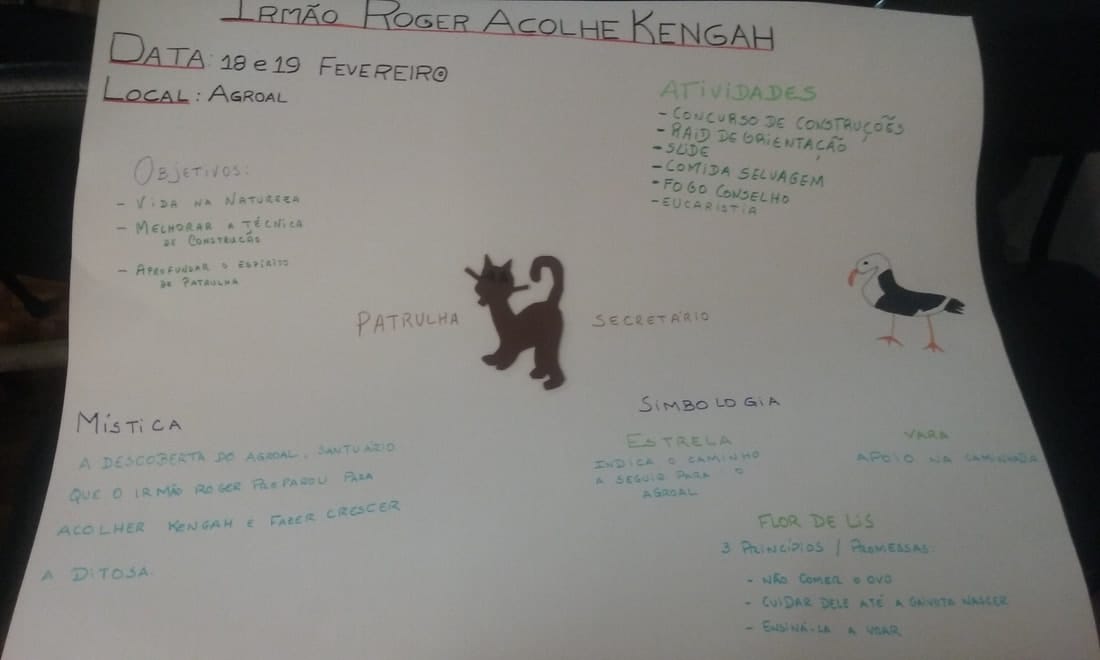 IRMÃO ROGER ACOLHE KENGAH
DATA: 18 e 19 FEVEREIRO
LOCAL: AGROAL
OBJETIVOS:
- VIDA NA NATUREZA
- MELHORAR A TÉCNICA
DE CONSTRUÇÃO
- APROFUNDAR O ESPÍRITO
DE PATRULHA
ATIVIDADES
- CONCURSO DE CONSTRUÇÕES
- RAID DE ORIENTAÇÃO
- SLIDE
- COMIDA SELVAGEM
- FOGO CONSELHO
- EUCARISTIA
PATRULHA
SECRETÁRIO
MÍSTICA
A DESCOBERTA DO AGROAL, SANTUÁRIO
QUE O IRMÃO ROGER PREPAROU PARA
ACOLHER KENGAH E FAZER CRESCER
A DITOSA.
SIMBOLOGIA
ESTRELA
INDICA O CAMINHO
A SEGUIR PARA O
AGROAL
VARA
APOIO NA CAMINHADA
FLOR DE LIS
3 PRINCÍPIOS / PROMESSAS:
- NÃO COMER O OVO
- CUIDAR DELE ATÉ A GAIVOTA NASCER
- ENSINÁ-LA A VOAR